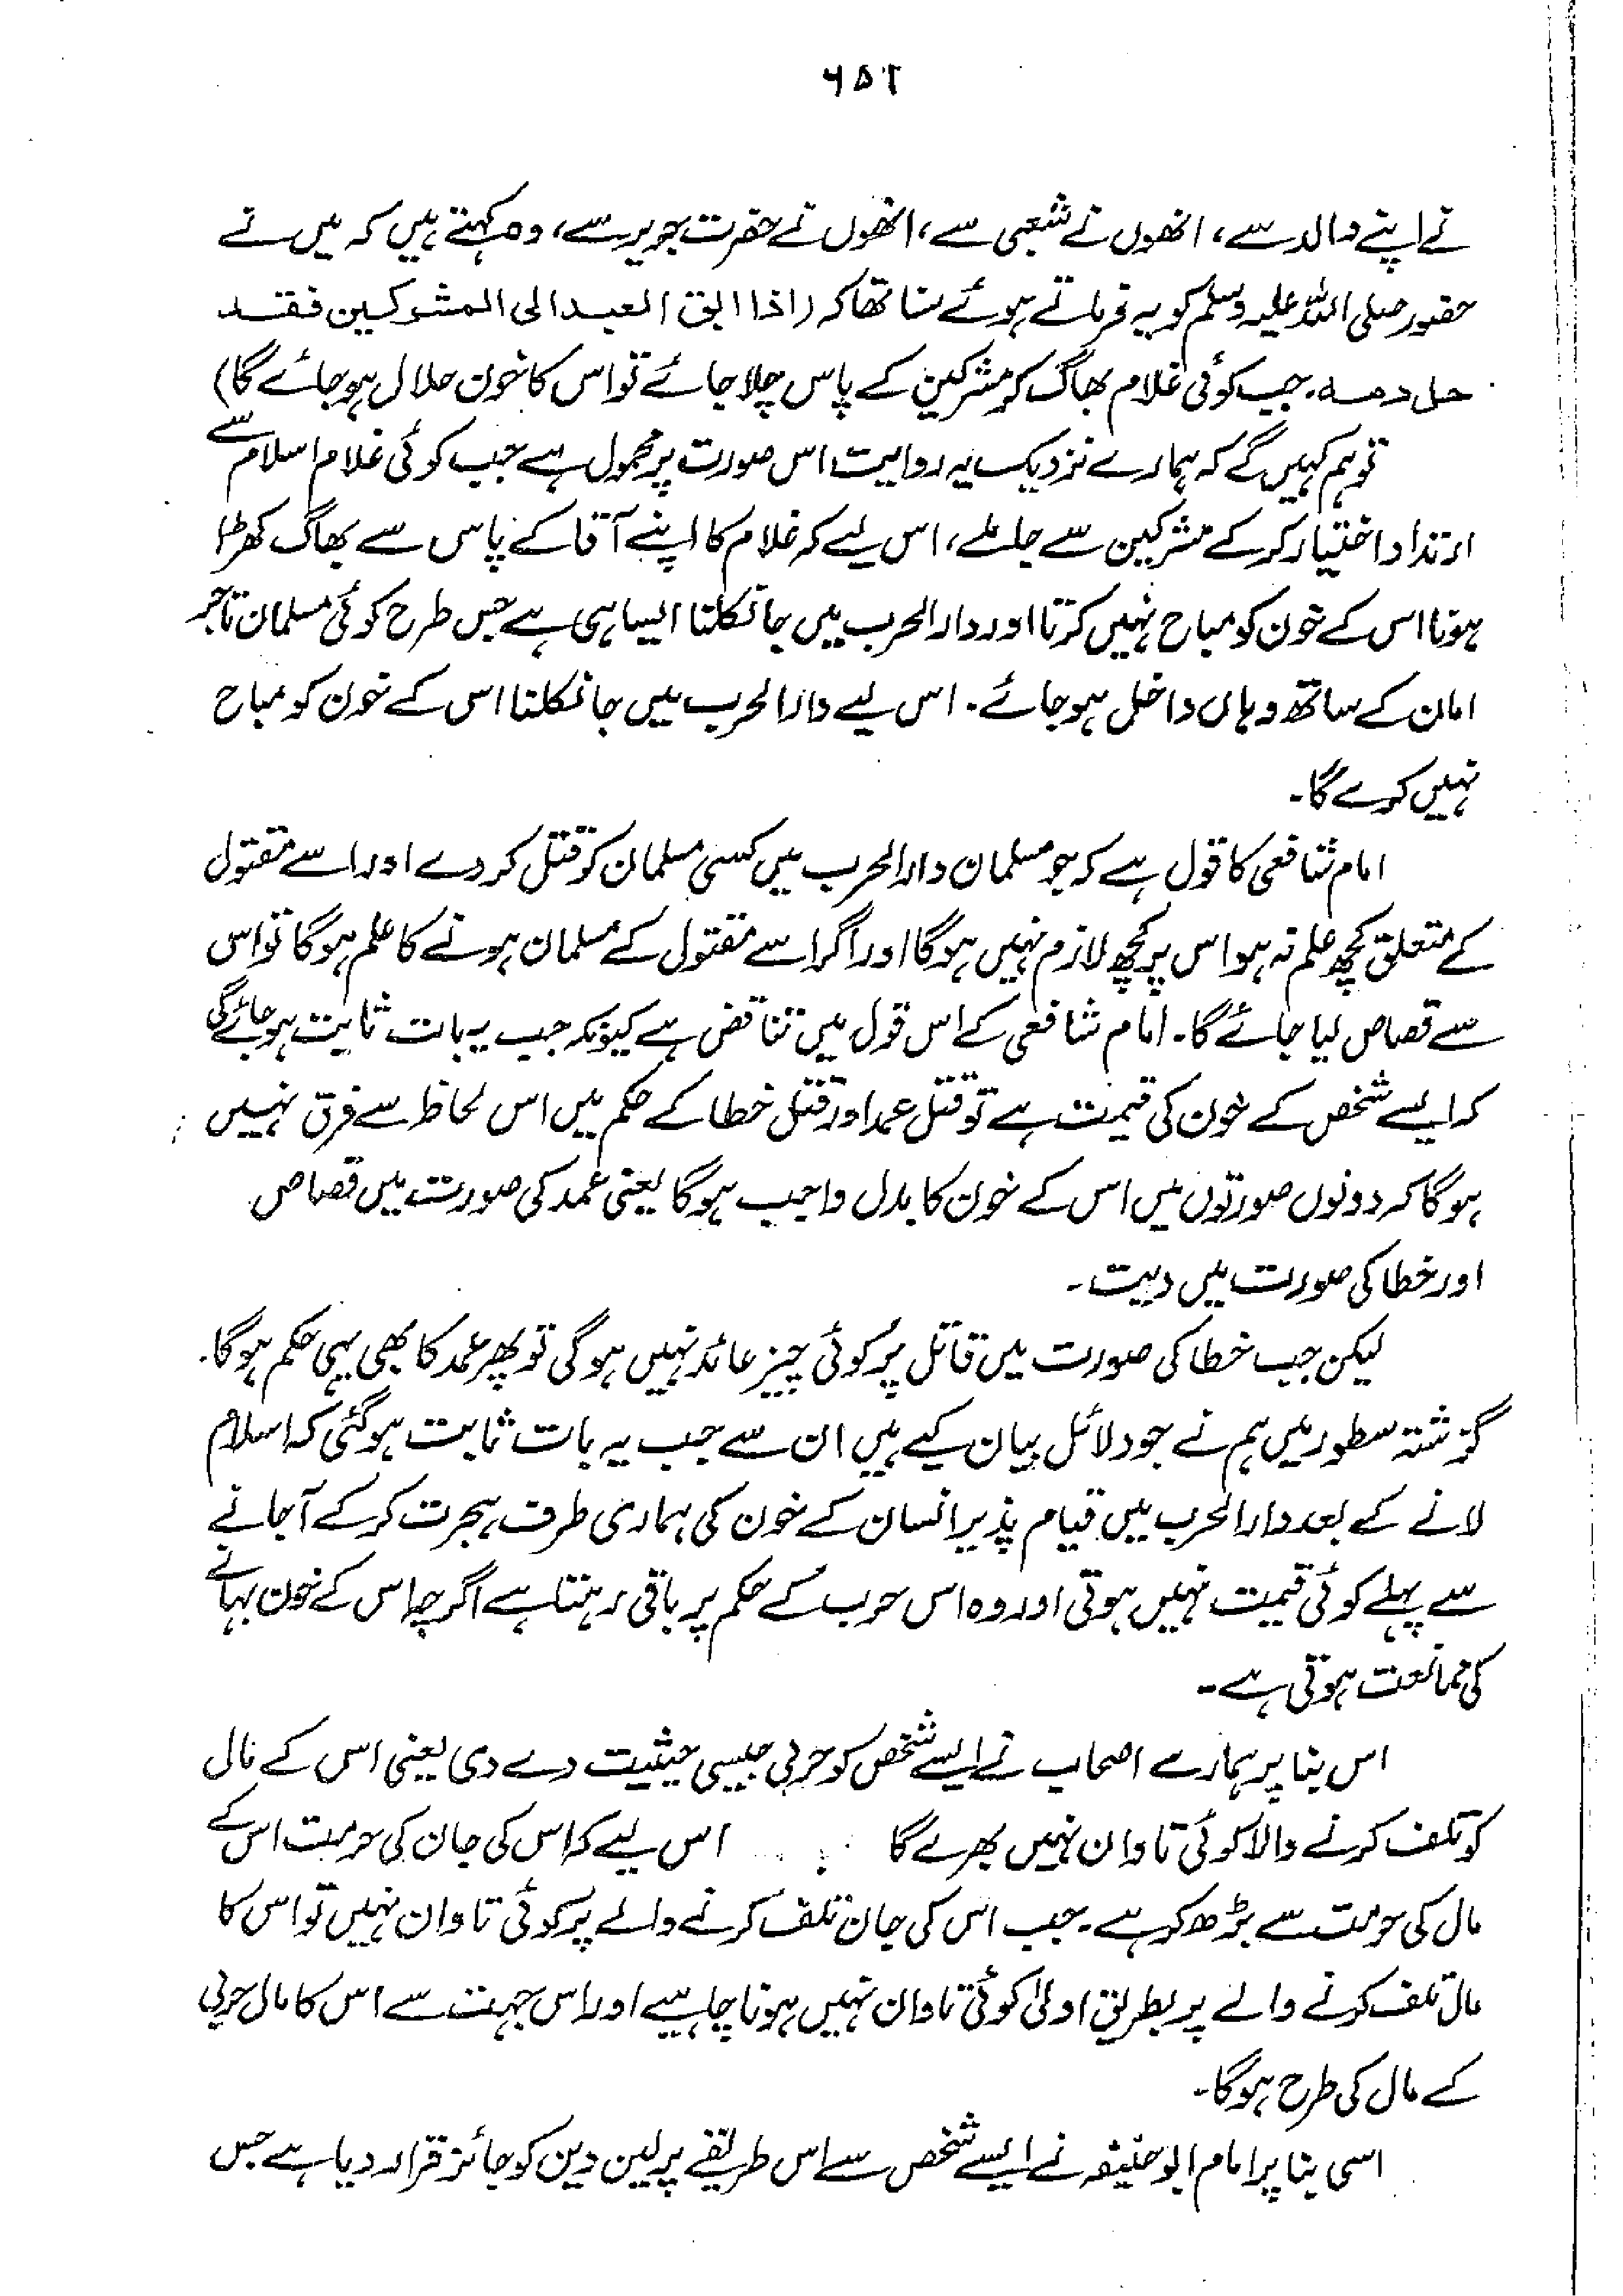 ۶۵۲
نے اپنے والد سے، انھوں نے شعبی سے، انھوں نے حضرت جریر سے، وہ کہتے ہیں کہ میں نے
حضور صلی اللہ علیہ وسلم کو یہ فرماتے ہوئے سنا تھا کہ (اذا ابق العبد الی المشرکین فقد
حل دمہ۔ جب کوئی غلام بھاگ کر مشرکین کے پاس چلا جائے تو اس کا خون حلال ہو جائے گا)
تو ہم کہیں گے کہ ہمارے نزدیک یہ روایت اس صورت پر محمول ہے جب کوئی غلام اسلام سے
ارتداد اختیار کر کے مشرکین سے جا ملے، اس لیے کہ غلام کا اپنے آقا کے پاس سے بھاگ کھڑا
ہونا اس کے خون کو مباح نہیں کرتا اور دارالحرب میں جا نکلنا ایسا ہی ہے جس طرح کوئی مسلمان تاجر
امان کے ساتھ وہاں داخل ہو جائے۔ اس لیے دارالحرب میں جا نکلنا اس کے خون کو مباح
نہیں کرے گا۔
امام شافعی کا قول ہے کہ جو مسلمان دارالحرب میں کسی مسلمان کو قتل کر دے اور اسے مقتول
کے متعلق کچھ علم نہ ہو اس پر کچھ لازم نہیں ہوگا اور اگر اسے مقتول کے مسلمان ہونے کا علم ہوگا تو اس
سے قصاص لیا جائے گا۔ امام شافعی کے اس قول میں تناقض ہے کیونکہ جب یہ بات ثابت ہو جائے گی
کہ ایسے شخص کے خون کی قیمت ہے تو قتل عمد اور قتل خطا کے حکم میں اس لحاظ سے فرق نہیں
ہوگا کہ دونوں صورتوں میں اس کے خون کا بدل واجب ہوگا یعنی عمد کی صورت میں قصاص
اور خطا کی صورت میں دیت۔
لیکن جب خطا کی صورت میں قاتل پر کوئی چیز عائد نہیں ہوگی تو پھر عمد کا بھی یہی حکم ہوگا۔
گزشتہ سطور میں ہم نے جو دلائل بیان کیے ہیں ان سے جب یہ بات ثابت ہو گئی کہ اسلام
لانے کے بعد دارالحرب میں قیام پذیر انسان کے خون کی ہماری طرف ہجرت کر کے آجانے
سے پہلے کوئی قیمت نہیں ہوتی اور وہ اس حرب کے حکم پر باقی رہتا ہے اگرچہ اس کے خون بہانے
کی ممانعت ہوتی ہے۔
اس بنا پر ہمارے اصحاب نے ایسے شخص کو حربی جیسی حیثیت دے دی یعنی اس کے مال
کو تلف کرنے والا کوئی تاوان نہیں بھرے گا اس لیے کہ اس کی جان کی حرمت اس کے
مال کی حرمت سے بڑھ کر ہے۔ جب اس کی جان تلف کرنے والے پر کوئی تاوان نہیں تو اس کا
مال تلف کرنے والے پر بطریق اولیٰ کوئی تاوان نہیں ہونا چاہیے اور اس جہت سے اس کا مال حربی
کے مال کی طرح ہوگا۔
اسی بنا پر امام ابو حنیفہ نے ایسے شخص سے اس طریقے پر لین دین کو جائز قرار دیا ہے جس